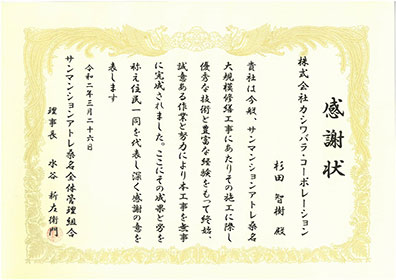 感謝状
株式会社カシワバラ・コーポレーション
杉田 智樹 殿
貴社は今般、サンマンションアトレ桑名
大規模修繕工事にあたりその施工に際し
優秀な技術と豊富な経験をもって終始、
誠意ある作業と努力により本工事を無事
に完成されました。ここにその成果と労を
称え住民一同を代表し深く感謝の意を
表します
令和二年三月二十六日
サンマンションアトレ桑名全体管理組合
理事長 水谷 新左衛門